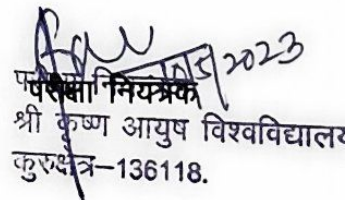 5/2023
परीक्षा नियंत्रक
श्री कृष्ण आयुष विश्वविद्यालय
कुरुक्षेत्र-136118.